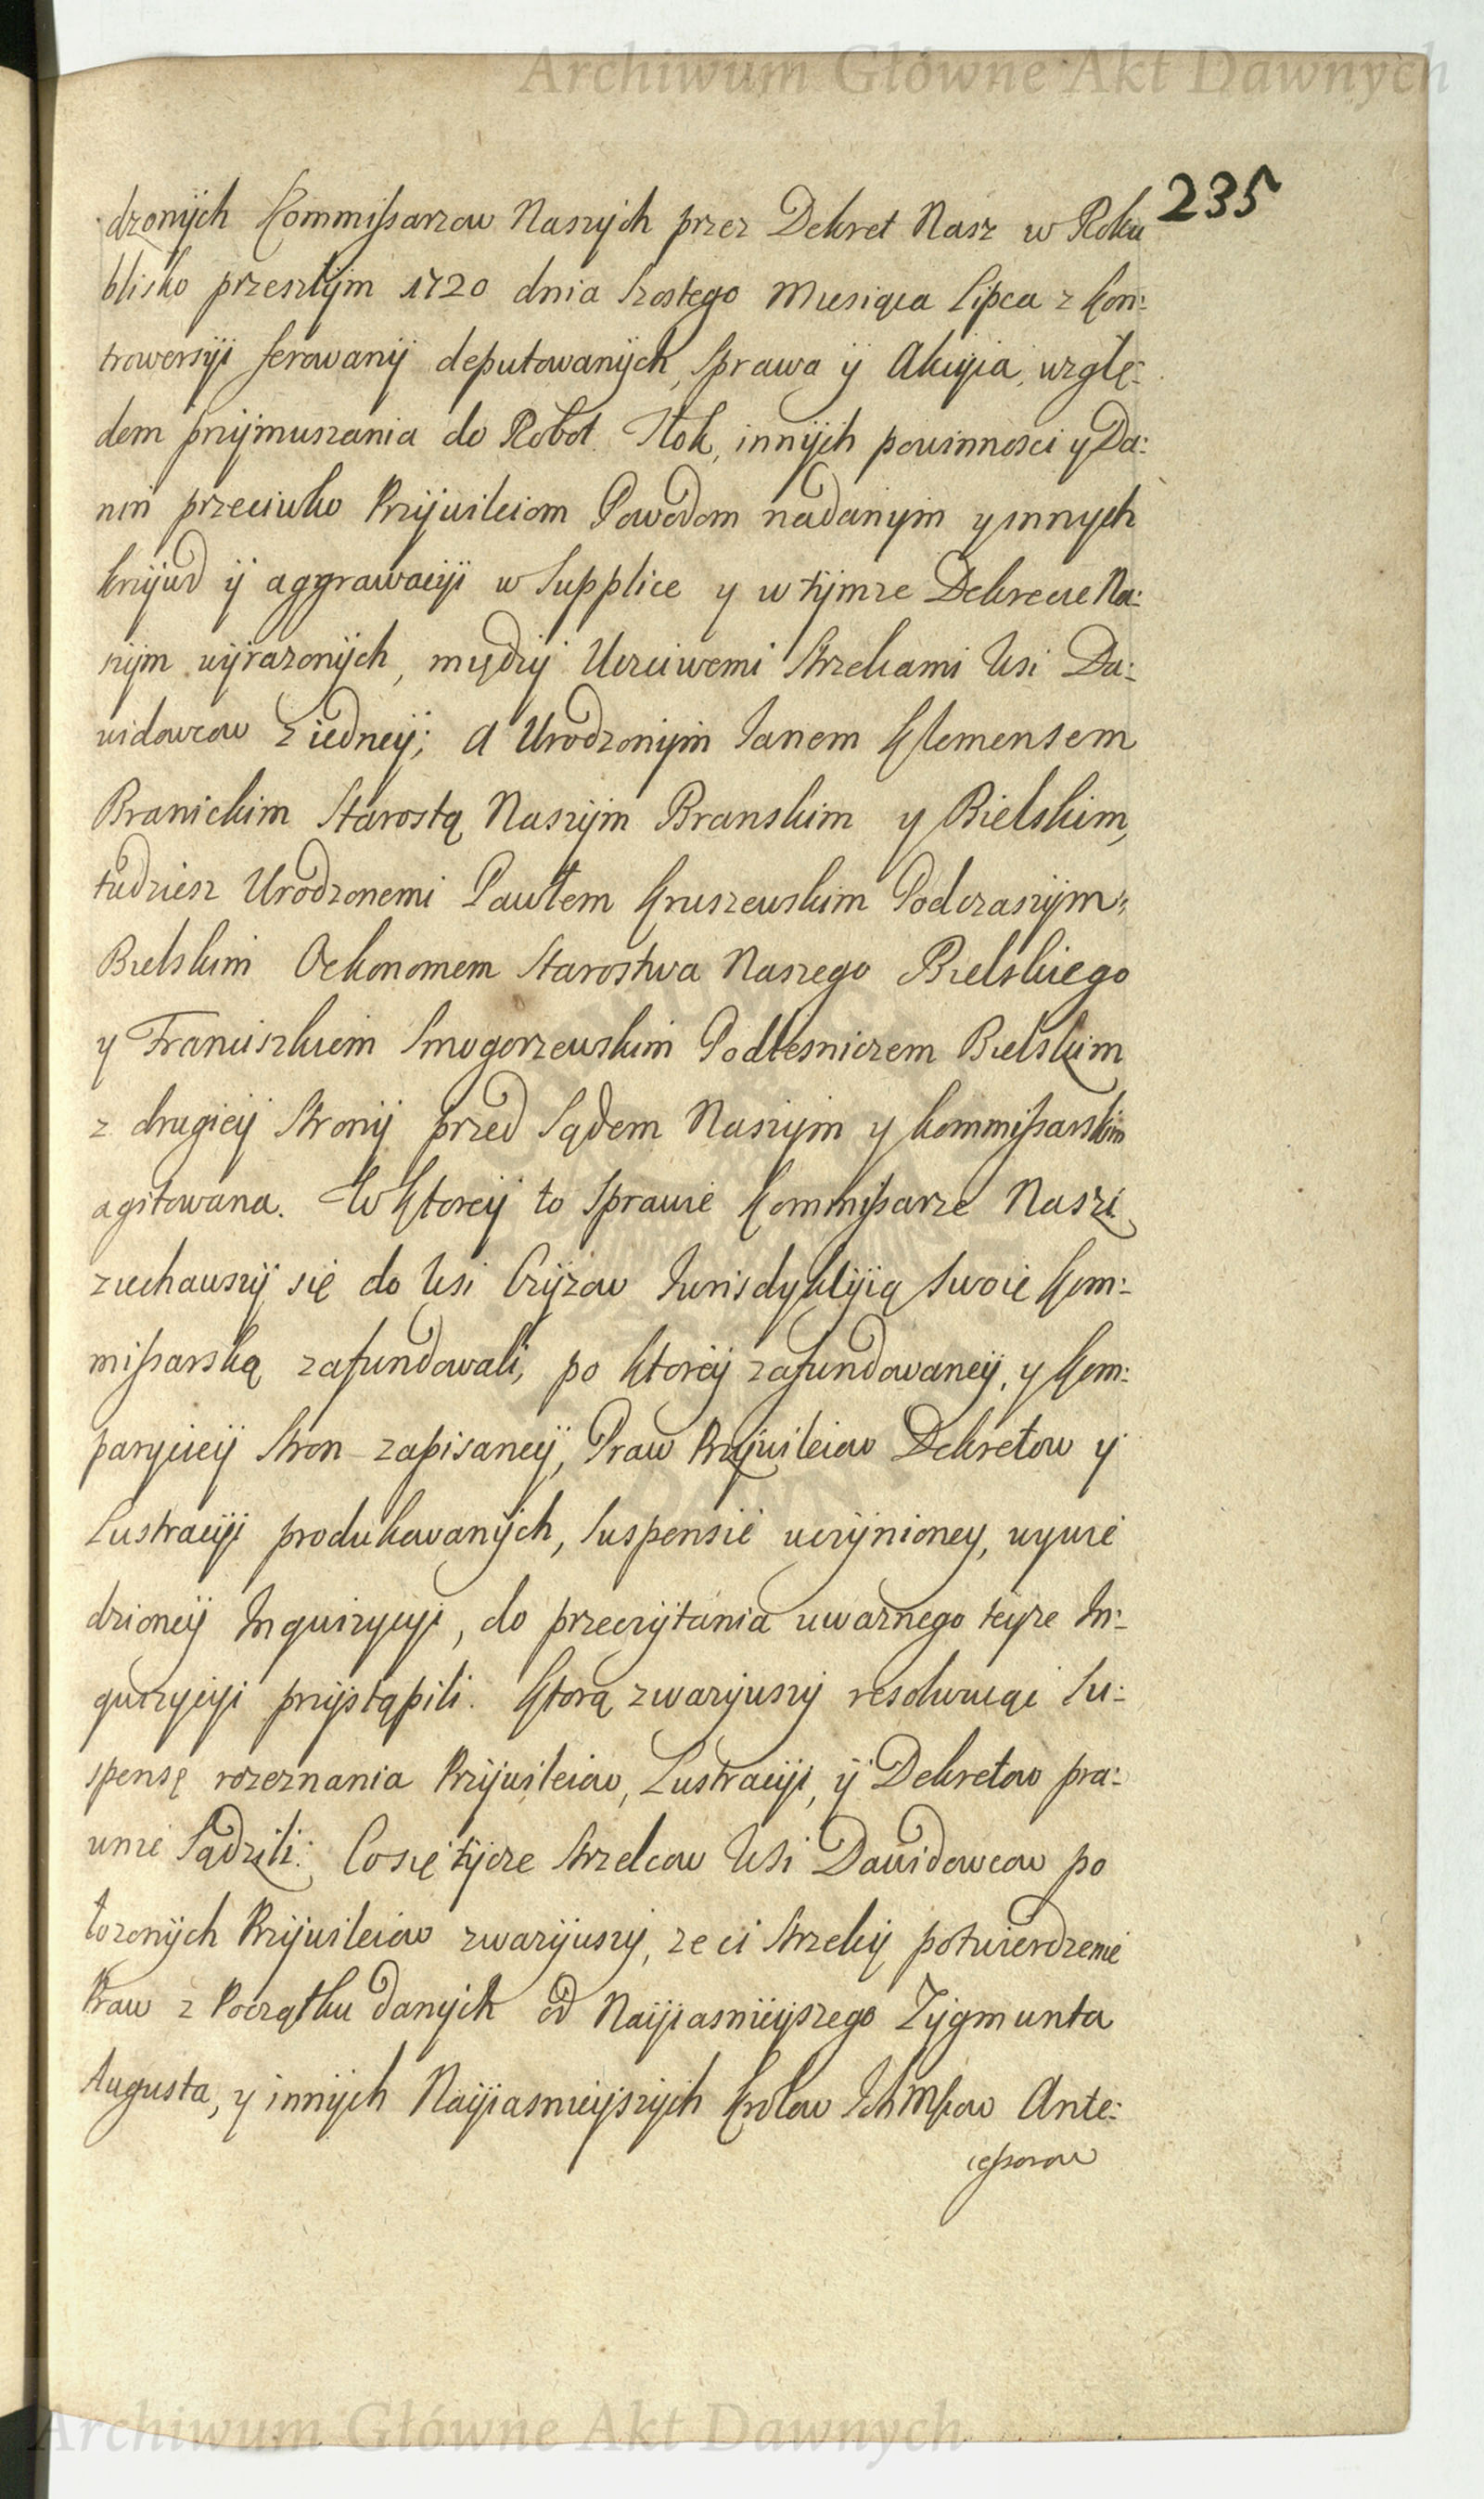 Archiwum Główne Akt Dawnych
235
dzonych Kommissarzow Naszych przez Dekret Nasz w Roku
blisko przeszłym 1720 dnia Szostego Miesiąca Lipca z kon:
trowersyi ferowany deputowanych, sprawa y Akcyia, wzglę:
dem przymuszania do Robot Tłok, innych powinnosci y Da:
nin przeciwko Przywileiom Powodom nadanym y innych
krzywd y aggrawacyi w Supplice y w tymze Dekrecie Na:
szym wyrazonych, między Uczciwemi Strzelcami Wsi Da:
widowcow z iedney; A Urodzonym Janem Klemensem
Branickim Starostą Naszym Branskim y Bielskim,
tudziesz Urodzonemi Pawłem Kruszewskim Podczaszym
Bielskim Oekonomem Starostwa Naszego Bielskiego
y Franciszkiem Smogorzewskim Podlesniczem Bielskim
z drugiey Strony przed Sądem Naszym y kommissarskim
agitowana. W ktorey to Sprawie Kommissarze Naszi
ziechawszy się do Wsi Czyzow Jurisdykcyią Swoie Kom:
missarską zafundowali, po ktorey zafundowaney, y Kom:
paryciey Stron zapisaney, Praw Przywileiow Dekretow y
Lustracyi produkowanych, Suspensie uczynioney, wywie
dzioney Inquizycyi, do przeczytania uwaznego teyze In:
quizycyi przystąpili. Ktorą zwazywszy resolwuiąc Su:
spensę rozeznania Przywileiow, Lustracyi, y Dekretow pra:
wnie Sądzili: Co się tycze Strzelcow Wsi Dawidowcow po
łozonych Przywileiow zwazywszy, ze ci Strzelcy potwierdzenie
Praw z Początku danych od Nayiasnieyszego Zygmunta
Augusta, y innych Nayiasnieyszych Krolow Ichmsciow Ante:
cessorow
Archiwum Główne Akt Dawnych